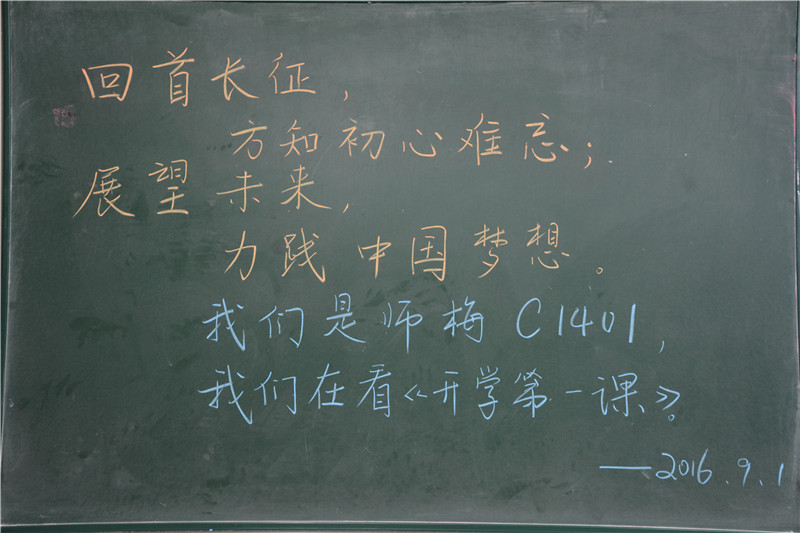 回首长征，
方知初心难忘；
展望未来，
力践中国梦想。
我们是师梅C1401，
我们在看《开学第一课》。
——2016.9.1